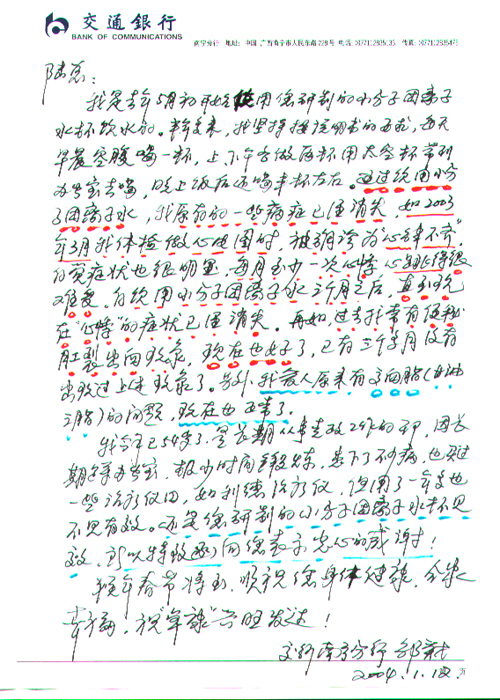 交通銀行
BANK OF COMMUNICATIONS
南宁分行 地址：中国 广西南宁市人民东路228号 电话：(0771)2835035 传真：(0771)2835475
陆总：
我是去年5月初开始使用您研制的小分子团离子
水杯饮水的。半年来，我坚持按说明书的要求，每天
早晨空腹喝一杯，上、下午各做两杯用太空杯带到
办公室去喝，晚上饭后还喝半杯左右。通过饮用小分
子团离子水，我原有的一些病症已经消失，如2003
年3月我体检做心电图时，被诊为“心律不齐”，
的症状也很明显，每月至少一次心悸，心跳得很
难受，自饮用小分子团离子水三个月之后，直到现
在“心悸”的症状已经消失。再如，过去我常有便秘
肛裂出血现象，现在也好了，已有三个多月没有
出现过上述现象了。另外，我爱人原来有高血脂（甘油
三脂）的问题，现在也正常了。
我今年已54岁了，是长期从事工作的，因长
期坐办公室，很少时间锻炼，患下了不少病，也买过
一些治疗仪用，如治疗仪，但用了一年多也
不见有效。还是您研制的小分子团离子水杯见
效，所以特致函向您表示衷心的感谢！
猴年春节将到，顺祝您身体健康，合家
幸福，祝“年”兴旺发达！
交行南宁分行
2004.1.18.